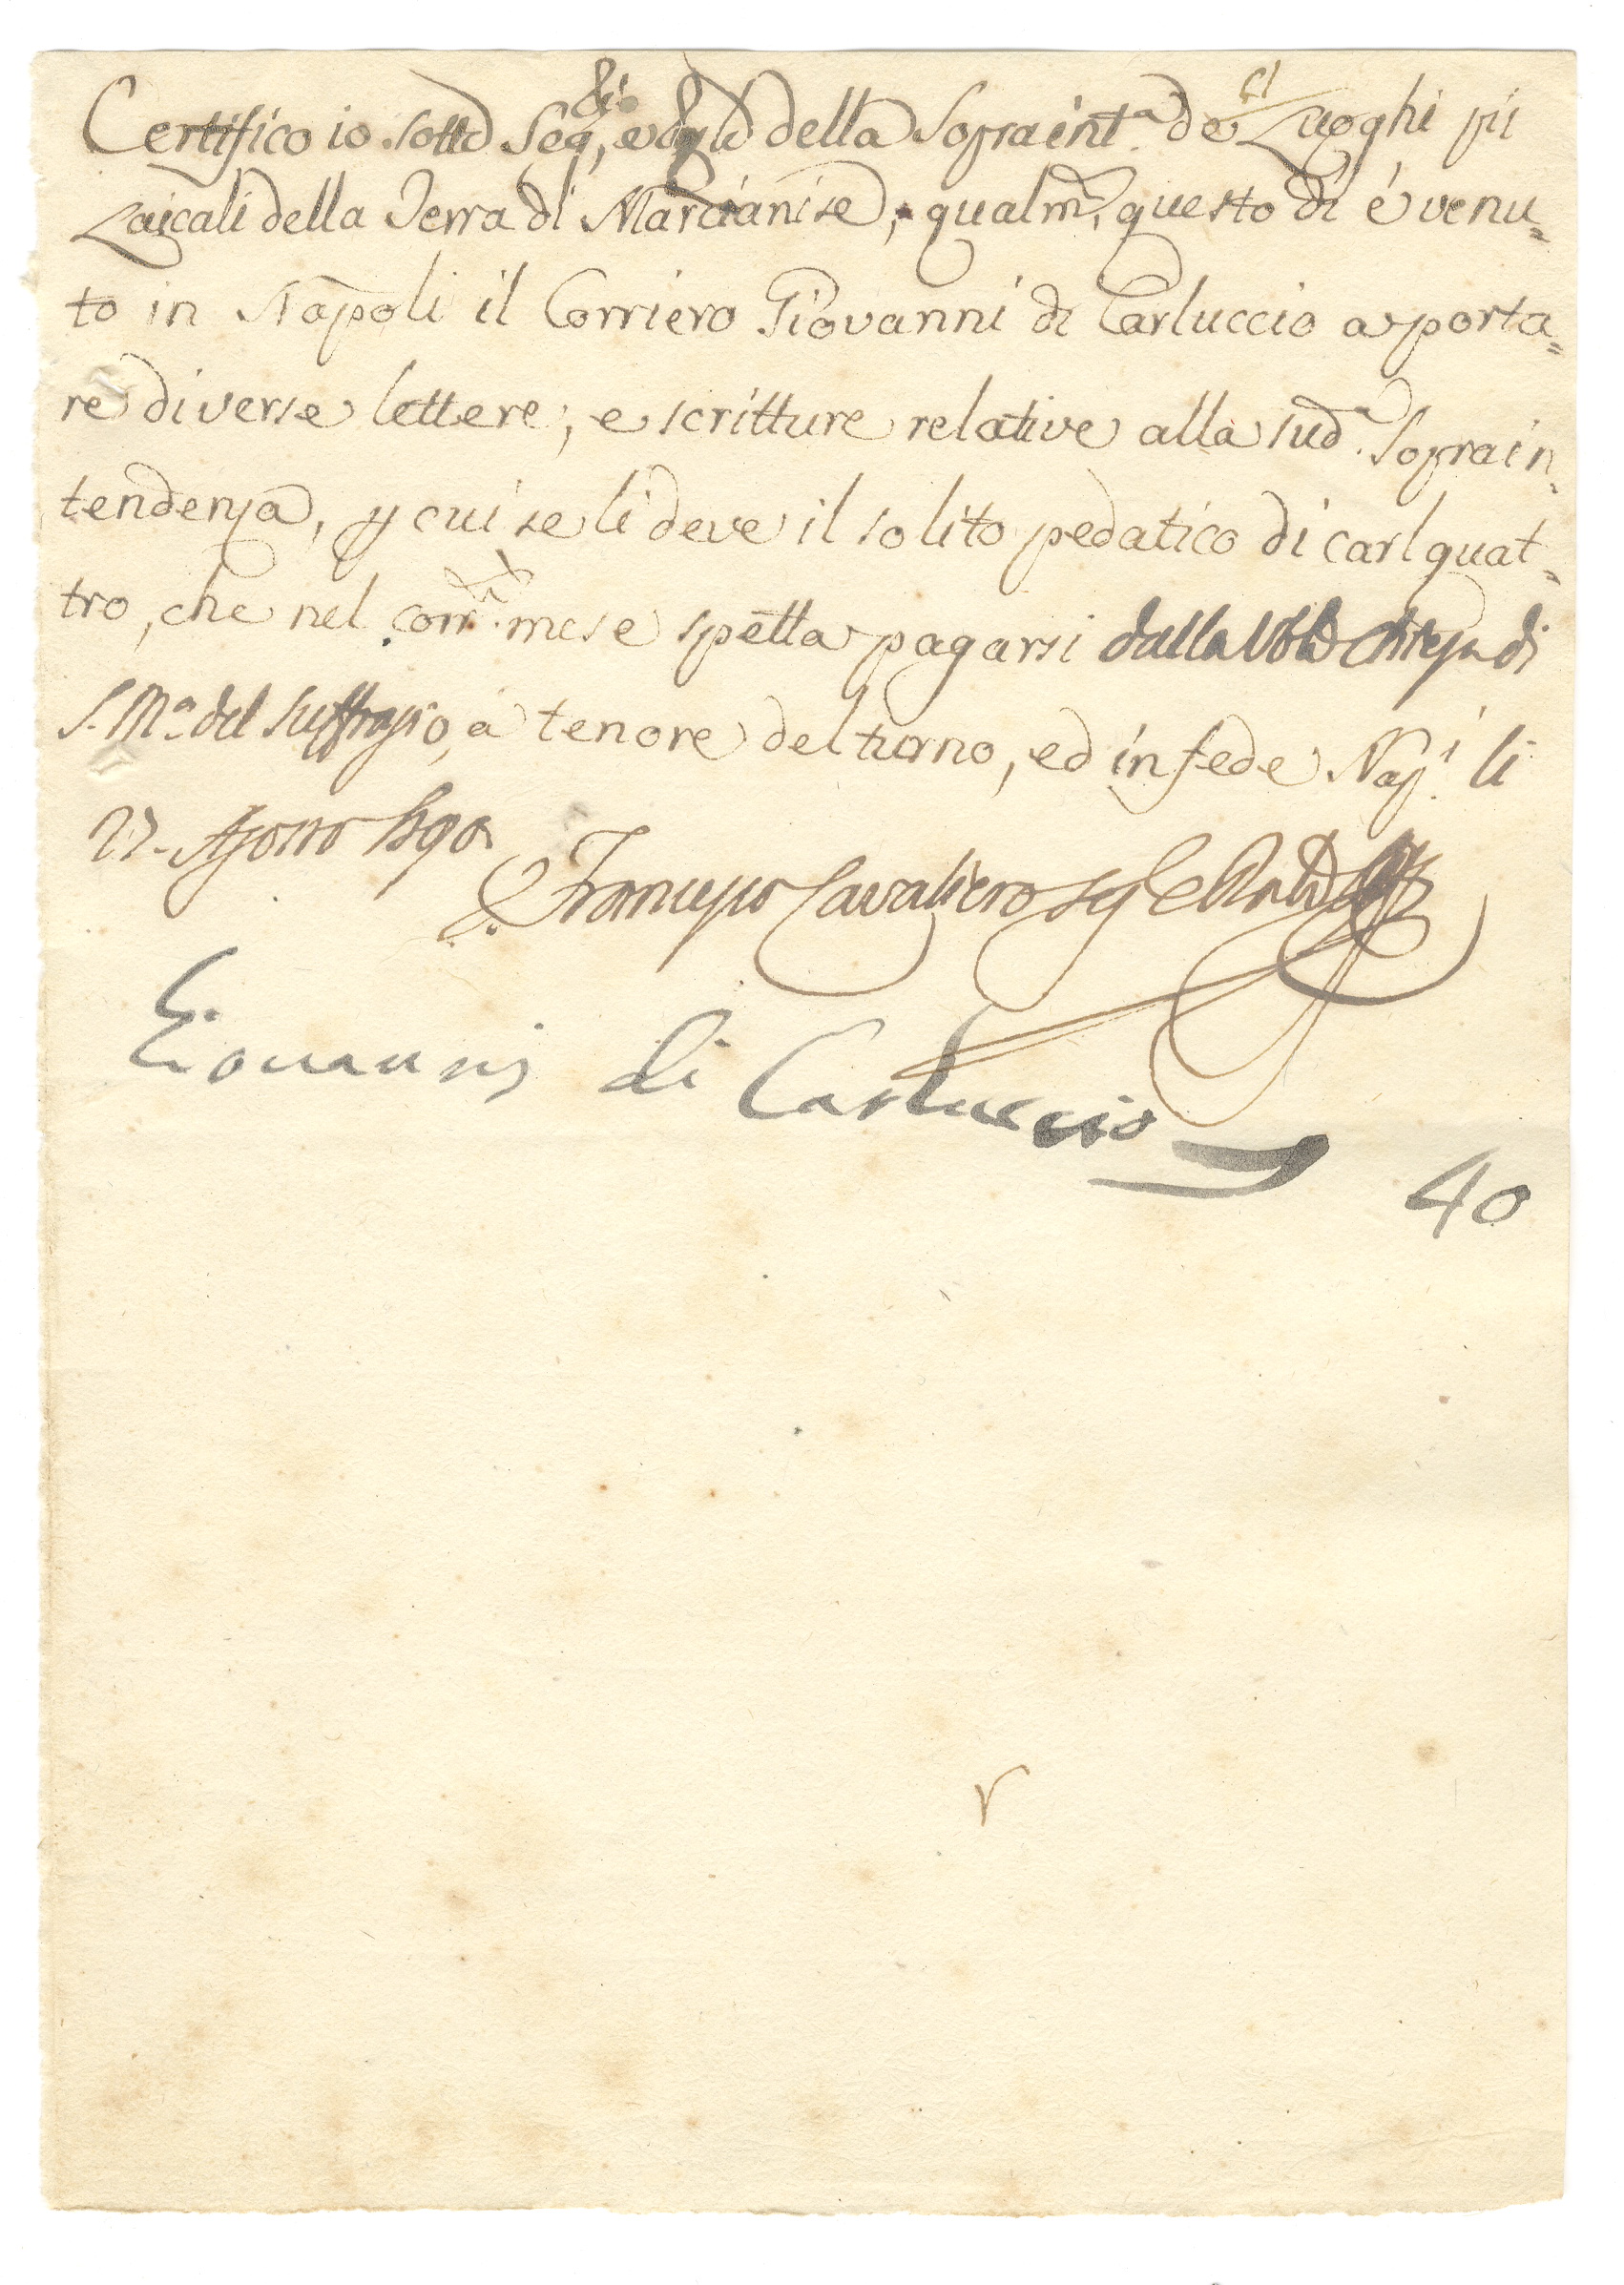 Certifico io sottο Seg.rio, e della Sopraint.a de Luoghi pii
Laicali della Terra di Marcianise, qualm., questo di é venu=
to in Napoli il Corriero Giovanni di Carluccio a porta=
re diverse lettere, e scritture relative alla sud.a Soprain=
tendenza, p cui se li deve il solito pedatico di carl quat=
tro, che nel corr. mese spetta pagarsi dalla Chiesa di
S. M.a del Suffragio, a tenore del turno, ed in fede Nap.i li
27. Agosto 1790
Francesco Cavaliero
Giovanni di Carluccio
40